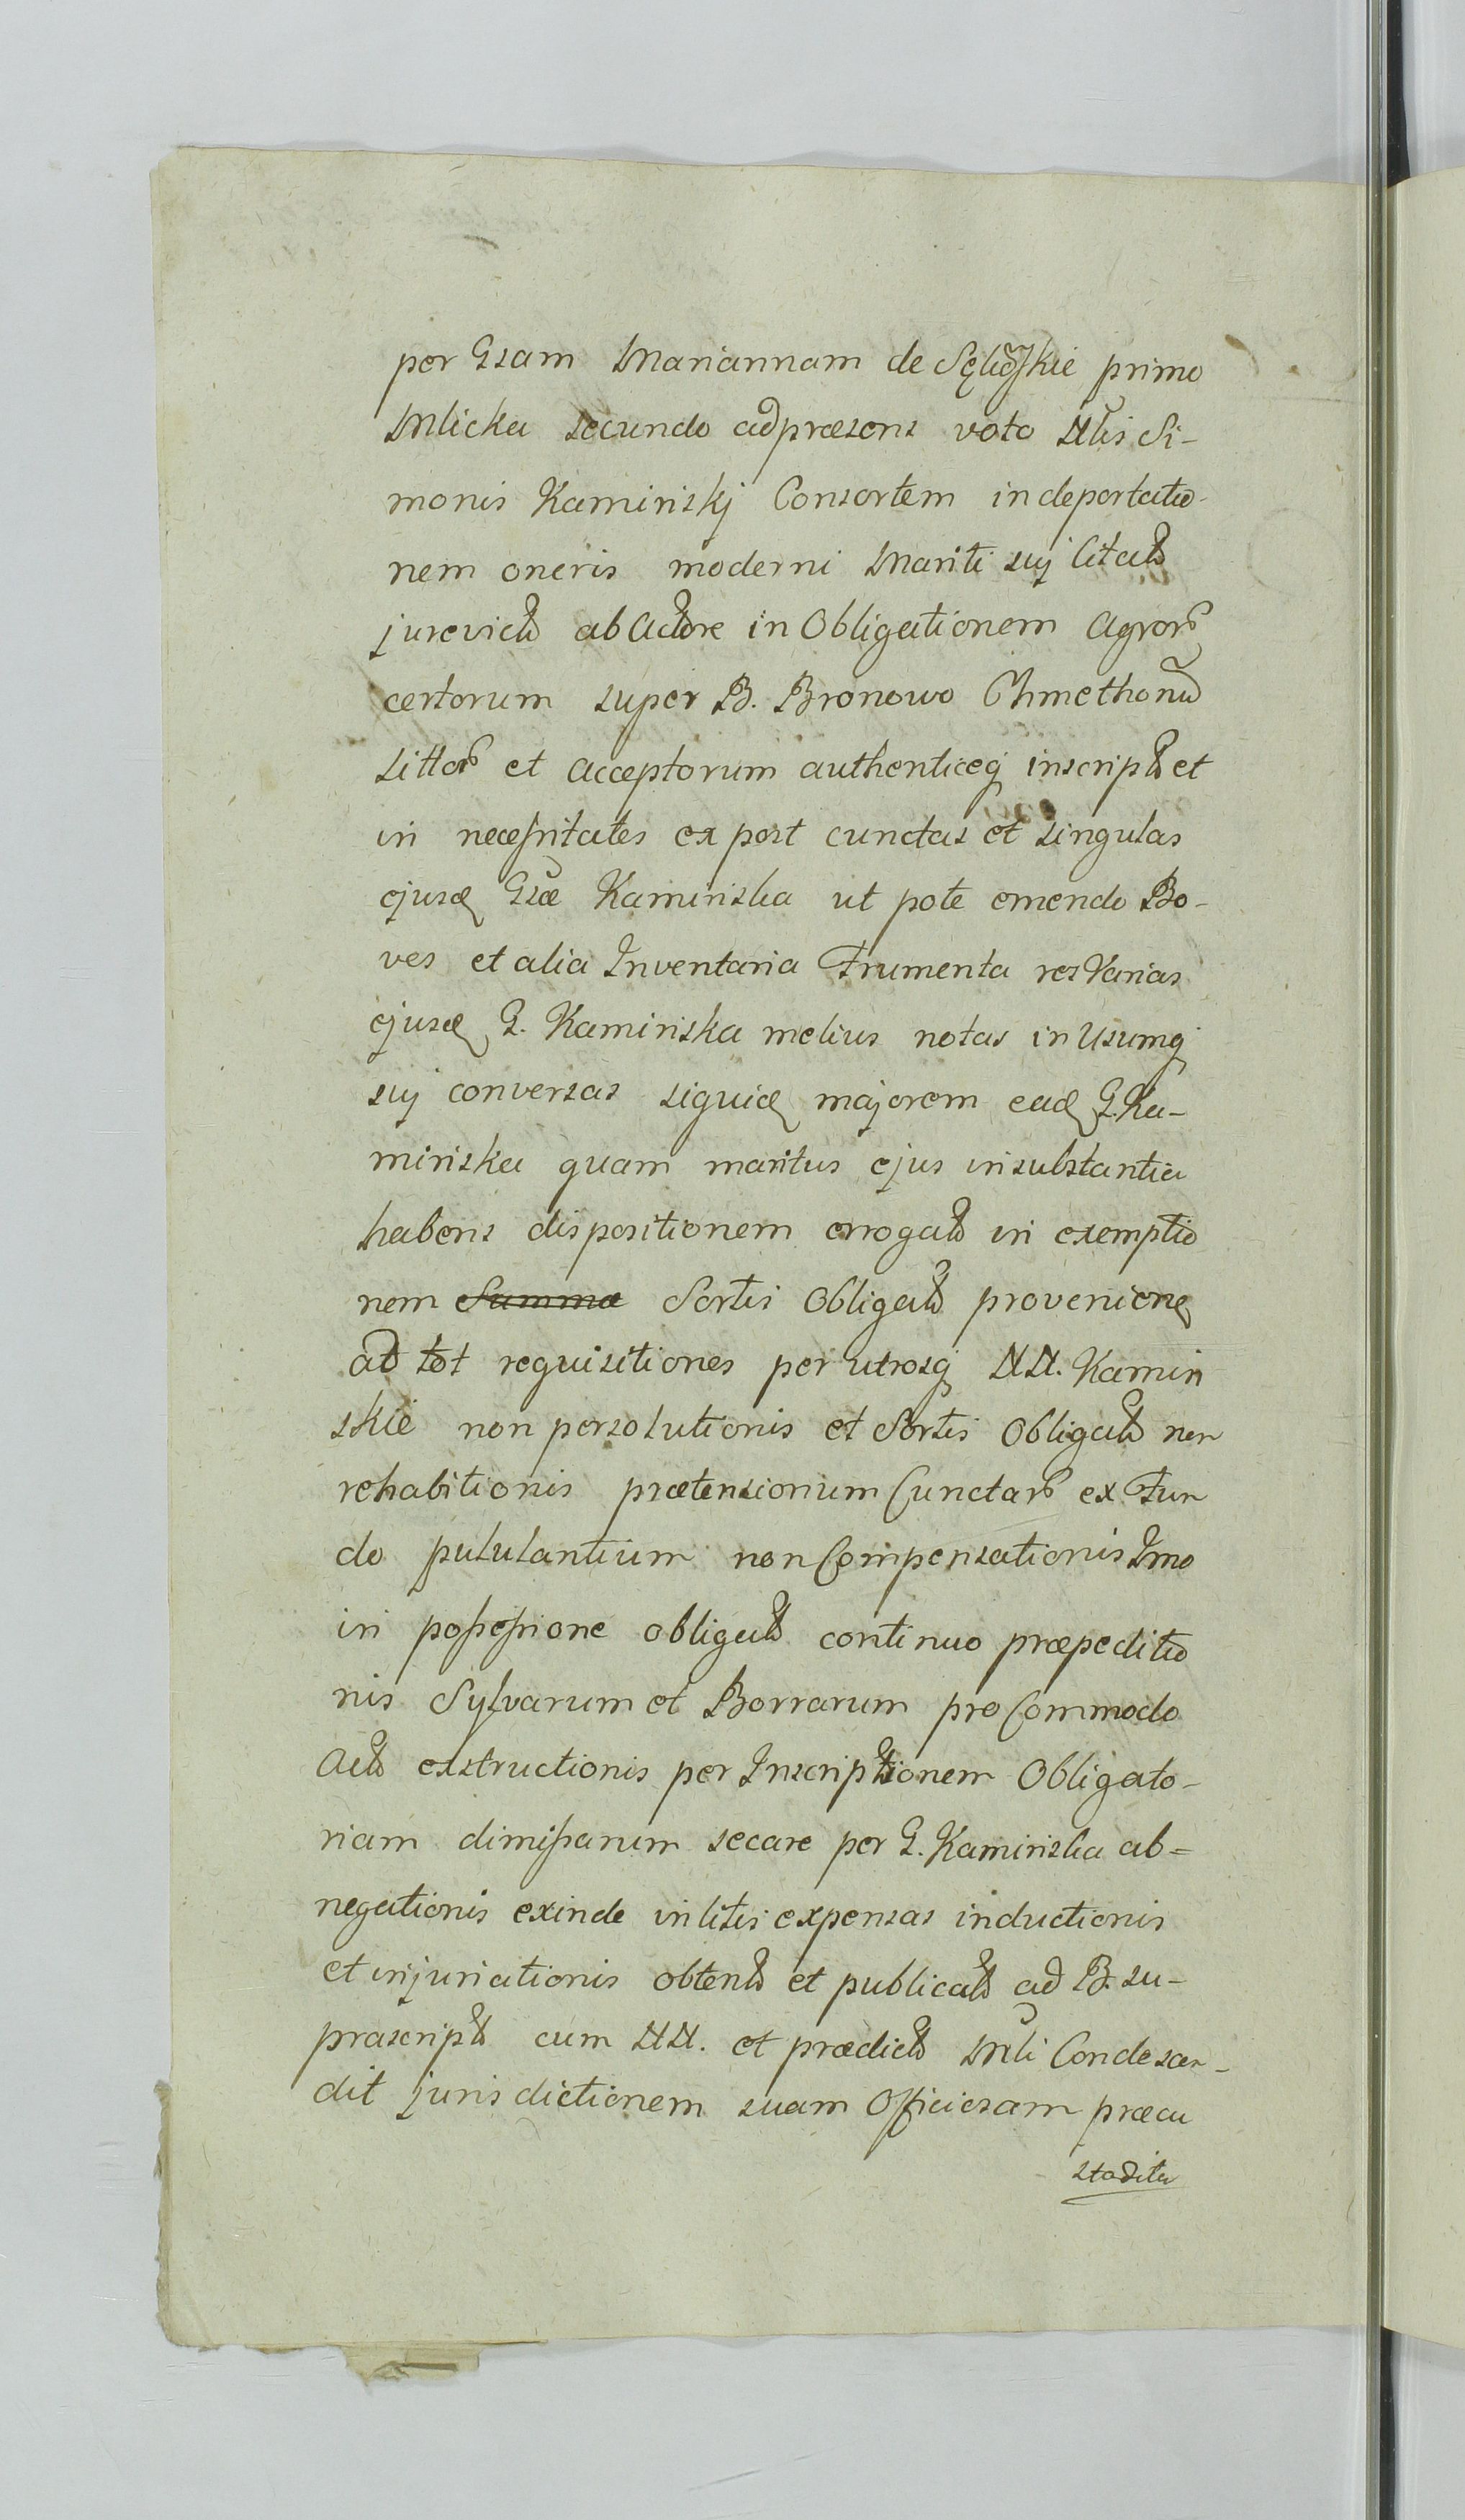 per Gsam Mariannam de primo
Mlicka secundo ad præsens voto Nlis Si-
monis Kaminskj Consortem in deportatio-
nem oneris moderni Mariti suj Citato
jurevicto ab Actore in Obligationem agror
certorum super B. Bronowo Chmethonu
sittor et acceptorum authenticeq inscripto et
in necessitates ex post cunctas et singulas
ejusd Gsæ Kaminska ut pote emendo Bo-
ves et alia Inventaria Frumenta res Varias
ejusd G. Kaminska melius notas in Usumq
suj conversas siquid majorem ead G. Ka-
minska quam maritus ejus in substantia
habens dispositionem errogato in exemptio
nem Summæ Sortis Obligato provenien
ad tot requisitiones per utrosq NN. Kamin
skie non persolutionis et Sortis Obligato non
rehabitionis prætensionum Cunctar ex Fun
do pululantium non Compensationis Imo
in possessione obligato continuo præpeditio
nis Sylvarum et Borrarum pro Commodo
Acto exstructionis per Inscriptionem Obligato-
riam dimissarum secare per G. Kaminska ab=
negationis exinde in litis expensas inductionis
et injuriationis obtento et publicato ad B. su-
prascripto cum NN. et prædicto Mli Condescen-
dit jurisdictionem suam Officiosam præcu
stodita